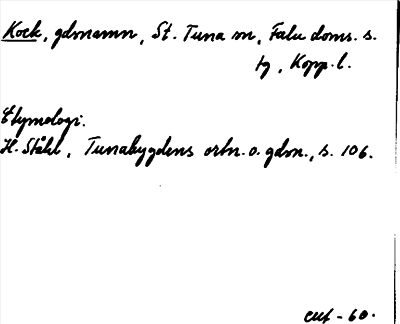 Kock, gdnamn, St. Tuna sn, Falu doms. s.
tg, Kopp. l.
Etymologi.
H. Ståhl, Tunabygdens ortn. o. gdsn., s. 106.
-60.